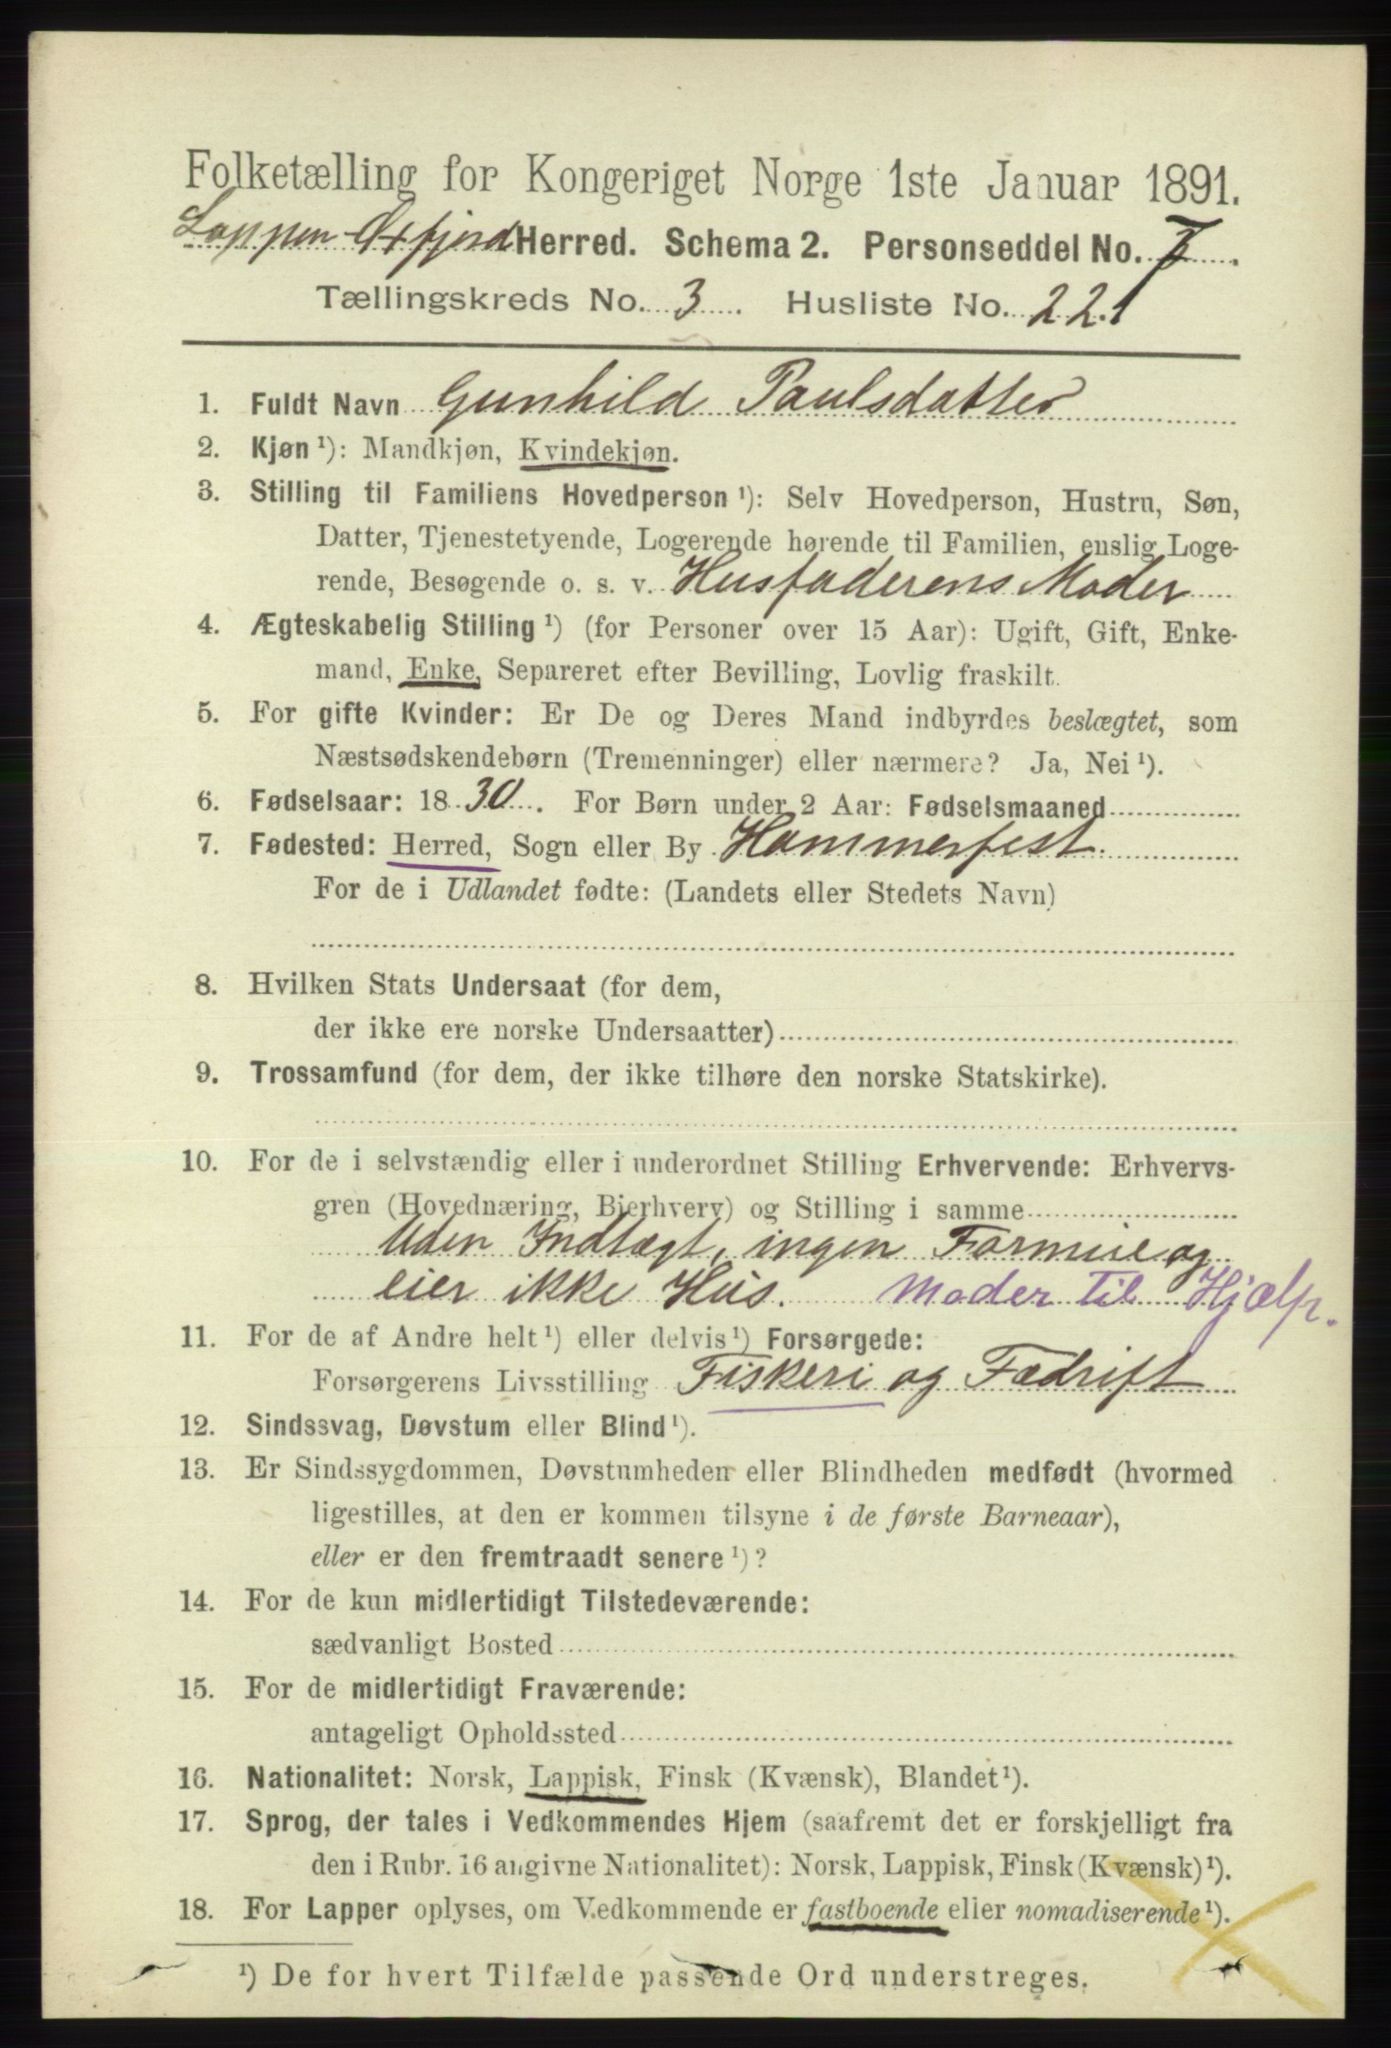 Folketælling for Kongeriget Norge 1ste Januar 1891.
Loppen-Øxfjord Herred. Schema 2. Personseddel No. 7.
Tællingskreds No. 3. Husliste No. 22.1
1. Fuldt Navn Gunhild Paulsdatter
2. Kjøn ¹): Mandkjøn, Kvindekjøn.
3. Stilling til Familiens Hovedperson ¹): Selv Hovedperson, Hustru, Søn,
Datter, Tjenestetyende, Logerende hørende til Familien, enslig Loge-
rende, Besøgende o. s. v. Husfaderens Moder
4. Ægteskabelig Stilling ¹) (for Personer over 15 Aar): Ugift, Gift, Enke-
mand, Enke, Separeret efter Bevilling, Lovlig fraskilt.
5. For gifte Kvinder: Er De og Deres Mand indbyrdes beslægtet, som
Næstsødskendebørn (Tremenninger) eller nærmere? Ja, Nei ¹).
6. Fødselsaar: 1830. For Børn under 2 Aar: Fødselsmaaned
7. Fødested: Herred, Sogn eller By Hammerfest.
For de i Udlandet fødte: (Landets eller Stedets Navn)
8. Hvilken Stats Undersaat (for dem,
der ikke ere norske Undersaatter)
9. Trossamfund (for dem, der ikke tilhøre den norske Statskirke).
10. For de i selvstændig eller i underordnet Stilling Erhvervende: Erhvervs-
gren (Hovednæring, Bierhverv) og Stilling i samme
Uden Indtægt, ingen Formue og
eier ikke Hus. Moder til Hjælp.
11. For de af Andre helt ¹) eller delvis ¹) Forsørgede:
Forsørgerens Livsstilling Fiskeri og Fædrift
12. Sindssvag, Døvstum eller Blind ¹).
13. Er Sindssygdommen, Døvstumheden eller Blindheden medfødt (hvormed
ligestilles, at den er kommen tilsyne i de første Barneaar),
eller er den fremtraadt senere ¹)?
14. For de kun midlertidigt Tilstedeværende:
sædvanligt Bosted
15. For de midlertidigt Fraværende:
antageligt Opholdssted
16. Nationalitet: Norsk, Lappisk, Finsk (Kvænsk), Blandet ¹).
17. Sprog, der tales i Vedkommendes Hjem (saafremt det er forskjelligt fra
den i Rubr. 16 angivne Nationalitet): Norsk, Lappisk, Finsk (Kvænsk) ¹).
18. For Lapper oplyses, om Vedkommende er fastboende eller nomadiserende ¹).
¹) De for hvert Tilfælde passende Ord understreges.